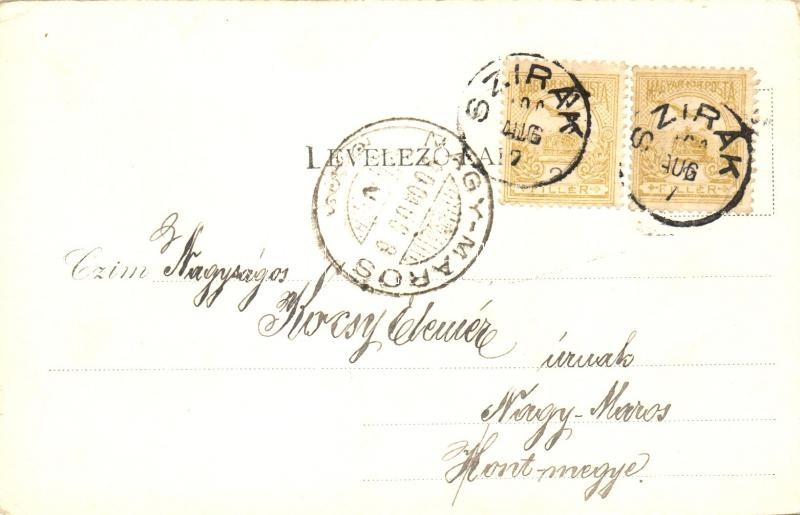 MAGYAR KIR. POSTA
2
FILLÉR
MAGYAR KIR. POSTA
FILLÉR
SZIRÁK
AUG
7
SZIRÁK
AUG
7
LEVELEZŐ-LAP
NAGY-MAROS
Czim Nagyságos
Kocsy Elemér
úrnak
Nagy-Maros
Hont-megye.